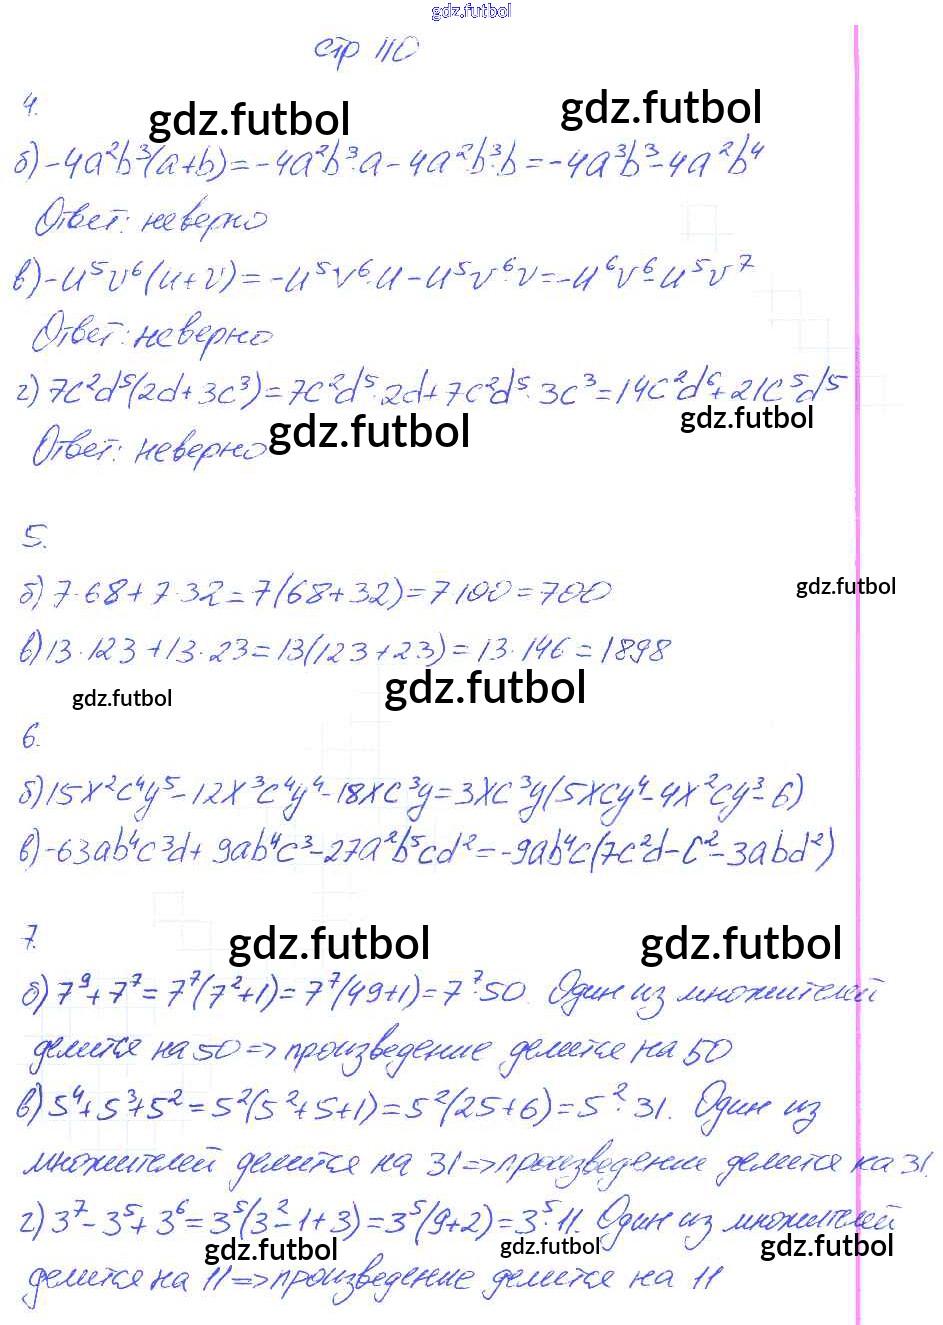 gdz.futbol
стр 110
4.
gdz.futbol gdz.futbol
б) -4a²b³(a+b) = -4a²b³·a - 4a²b³·b = -4a³b³ - 4a²b⁴
Ответ: неверно
в) -u⁵v⁶(u+v) = -u⁵v⁶·u - u⁵v⁶·v = -u⁶v⁶ - u⁵v⁷
Ответ: неверно
г) 7c²d⁵(2d+3c³) = 7c²d⁵·2d + 7c²d⁵·3c³ = 14c²d⁶ + 21c⁵d⁵
gdz.futbol gdz.futbol
Ответ: неверно
5.
б) 7·68 + 7·32 = 7(68+32) = 7·100 = 700
gdz.futbol
в) 13·123 + 13·23 = 13(123+23) = 13·146 = 1898
gdz.futbol gdz.futbol
6.
б) 15x²c⁴y⁵ - 12x³c⁴y⁴ - 18xc³y = 3xc³y(5xcy⁴ - 4x²cy³ - 6)
в) -63ab⁴c³d + 9ab⁴c³ - 27a²b⁵cd² = -9ab⁴c(7c²d - c² - 3abd²)
7.
gdz.futbol gdz.futbol
б) 7⁹ + 7⁷ = 7⁷(7²+1) = 7⁷(49+1) = 7⁷·50. Один из множителей
делится на 50 => произведение делится на 50
в) 5⁴ + 5³ + 5² = 5²(5²+5+1) = 5²(25+6) = 5²·31. Один из
множителей делится на 31 => произведение делится на 31.
г) 3⁷ - 3⁵ + 3⁶ = 3⁵(3²-1+3) = 3⁵(9+2) = 3⁵·11. Один из множителей
gdz.futbol gdz.futbol gdz.futbol
делится на 11 => произведение делится на 11